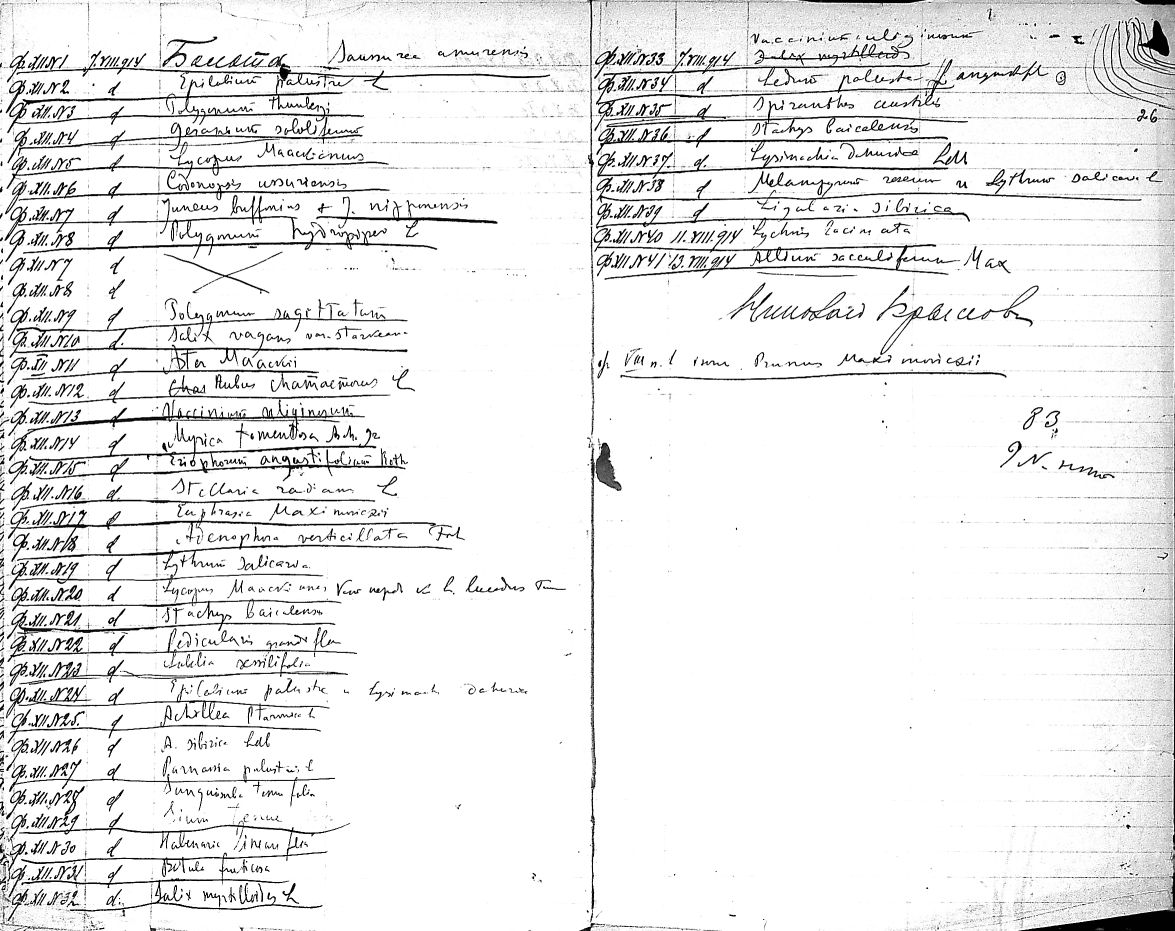 Ф.XII.N1 7.VIII.914 Saussurea amurensis
Ф.XII.N2 d Epilobium palustre L
Ф.XII.N3 d Polygonum thunbergi
Ф.XII.N4 d Geranium soboliferum
Ф.XII.N5 d Lycopus Maackianus
Ф.XII.N6 d Codonopsis ussuriensis
Ф.XII.N7 d Juncus buffonius + J. nipponensis
Ф.XII.N8 d Polygonum hydropiper L
Ф.XII.N7 d
Ф.XII.N8 d
Ф.XII.N9 d Polygonum sagittatum
Ф.XII.N10 d. Salix vagans var.
Ф.XII.N11 d Aster Maackii
Ф.XII.N12 d Rubus chamaemorus L
Ф.XII.N13 d Vaccinium uliginosum
Ф.XII.N14 d Myrica tomentosa
Ф.XII.N15 d Eriophorum angustifolium Roth
Ф.XII.N16 d. Stellaria radians L
Ф.XII.N17 d Euphrasia Maximowiczii
Ф.XII.N18 d Adenophora verticillata
Ф.XII.N19 d Lythrum salicaria
Ф.XII.N20 d Lycopus Maackianus
Ф.XII.N21 d Stachys baicalensis
Ф.XII.N22 d Pedicularis grandiflora
Ф.XII.N23 d Lobelia sessilifolia
Ф.XII.N24 d Epilobium palustre и Lysimach dahurica
Ф.XII.N25. d Achillea Ptarmica L
Ф.XII.N26 d A. sibirica Ldb
Ф.XII.N27 d Parnassia palustris L
Ф.XII.N28 d Sanguisorba tenuifolia
Ф.XII.N29 d Sium tenue
Ф.XII.N30 d Habenaria linearifolia
Ф.XII.N31 d Betula fruticosa
Ф.XII.N32 d. Salix myrtilloides L
Vaccinium uliginosum
Ф.XII.N33 7.VIII.914 Salix myrtilloides
Ф.XII.N34 d Ledum palustre
Ф.XII.N35 d Spiranthes australis
26
Ф.XII.N36 d Stachys baicalensis
Ф.XII.N37 d. Lysimachia dahurica Ldb
Ф.XII.N38 d Melampyrum roseum и Lythrum salicaria L
Ф.XII.N39 d Ligularia sibirica
Ф.XII.N40 11.VIII.914 Lychnis laciniata
Ф.XII.N41 13.VIII.914 Allium sacculiferum Max
VIII n. 1 Prunus Maximowiczii
83